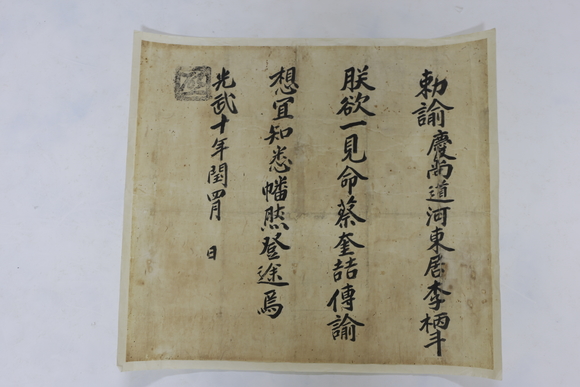 勅諭慶尚道河東居李柄斗
朕欲一見命蔡奎喆傳諭
想宜知悉幡然登途焉
光武十年閏四月 日